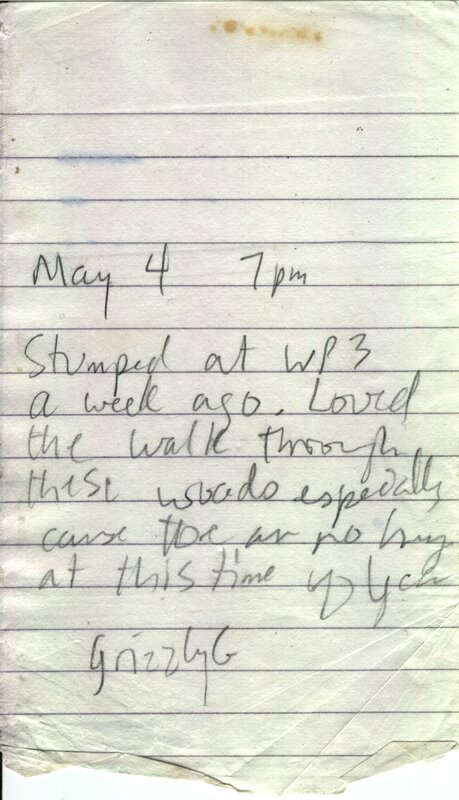 May 4 7pm
Stumped at WP3
a week ago. Loved
the walk through
these woods especially
cause there are no bugs
at this time of year
GrizzlyG